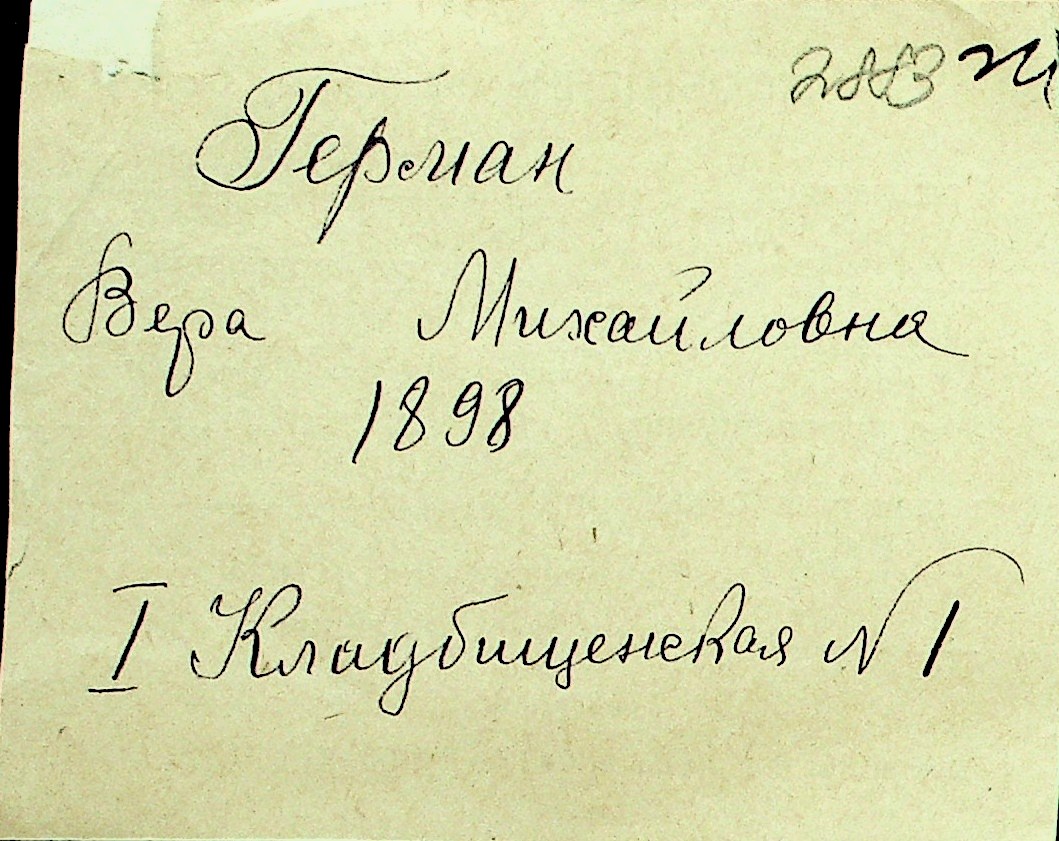 Герман
Вера Михайловна
1898
I Кладбищенская N 1